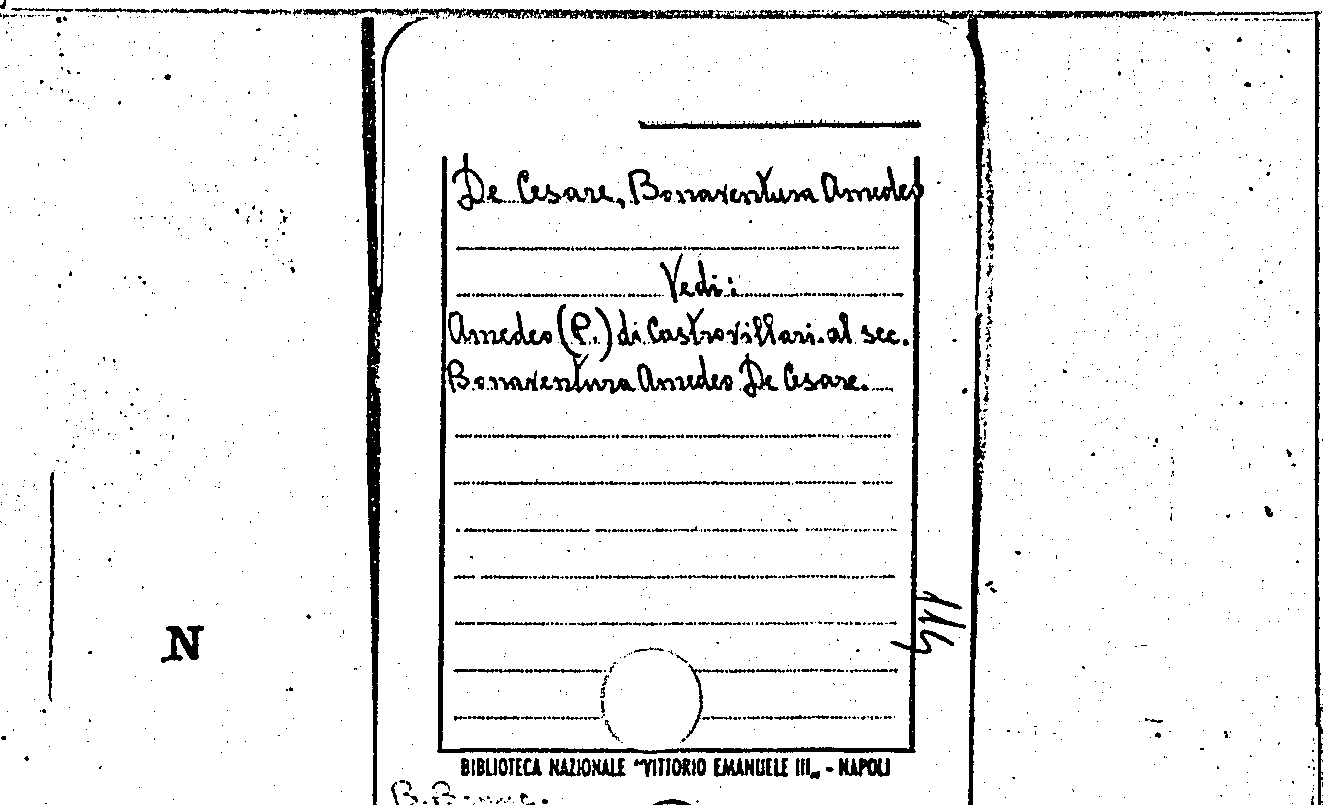 De Cesare, Bonaventura Amedeo
Vedi:
Amedeo (P.) di Castrovillari. al sec.
Bonaventura Amedeo De Cesare.
N
BIBLIOTECA NAZIONALE "VITTORIO EMANUELE III„ - NAPOLI